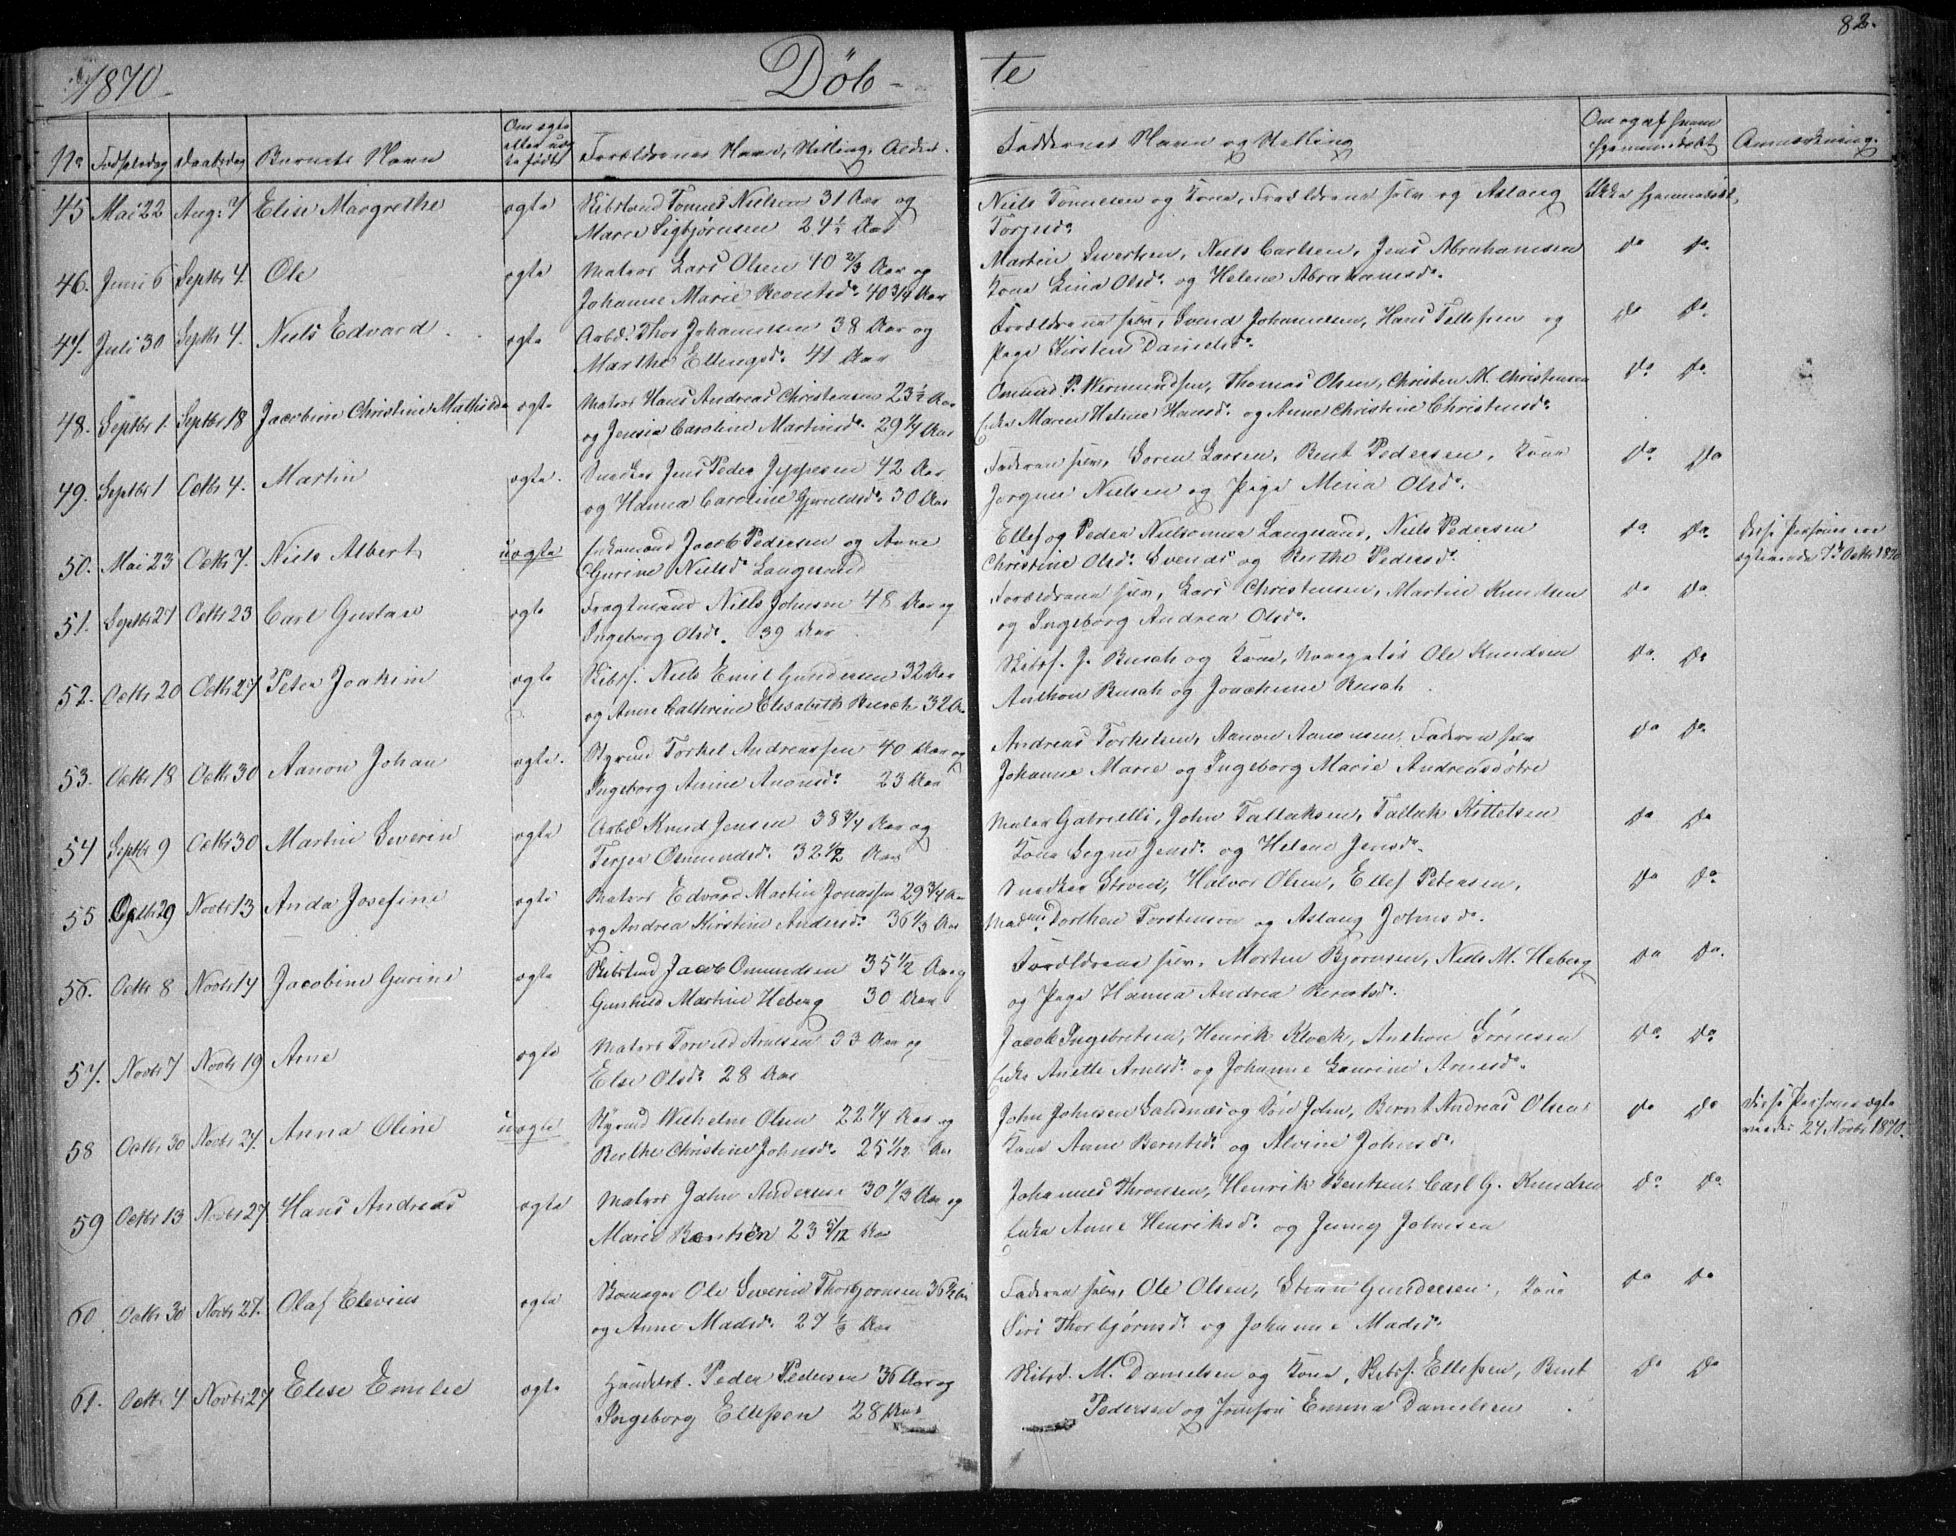 82.
1870
Döb-
te
No Fødselsdag Daabsdag Barnets Navn Om ægte eller uægte født Forældrenes Navn, Stilling, Alder. Faddernes Navn og Stilling Om og af hvem hjemmedøbt Anmærkning.
45 Mai 22 Aug: 7 Elise Margrethe ægte Skibstmd Tønnes Nielsen 31 Aar og Niels Tønnesen og Kone, Forældrene selv og Aslaug Ikke hjemmedøbt,
Maren Sigbjørnsen 24 ½ Aar Torjusd.
46. Juni 6 Septbr 4. Ole ægte Matros Lars Olsen 40 2/3 Aar og Martin Sivertsen, Niels Carlsen, Jens Abrahamsen Do Do
Johanne Marie Berntsd. 40 3/4 Aar Kone Lina Olsd. og Helene Abrahamsd.
47. Juli 30 Septbr 4. Niels Edvard ægte Arbd. Thor Johannessen 38 Aar og Forældrene selv, Svend Johannesen, Hans Tellefsen og Do Do
Marthe Ellingsd. 41 Aar Pige Kirsten Danielsd.
48. Septbr 1. Septbr 18 Jacobine Christine Mathilde ægte Matros Hans Andreas Christensen 23 ½ Aar Omund P. Wermundsen, Thomas Olsen, Christen M. Christensen Do Do
og Jensia Caroline Martinsd. 29 ¼ Aar Enke Maren Helene Hansd. og Anne Christine Christensd.
49. Septbr 1 Octbr 4. Martin ægte. Snedker Jens Peder Jeppesen 42 Aar Faderen selv, Søren Larsen, Bent Pedersen, Kone Do Do
og Hanna Caroline Gjeruldsd. 30 Aar Jørgine Nielsen og Pige Mina Olsd.
50. Mai 23 Octbr 7. Niels Albert uægte Enkemand Jacob Pedersen og Anne Ellef og Peder Nielsønner Langsund, Niels Pedersen Do Do Disse Personer ere
Gurine Nielsd. Langsund Christine Olsd. Svends og Berthe Pedersd. ægteviede 7de Octbr 1870
51. Septbr 27 Octbr 23 Carl Gustav ægte Fragtmand Niels Johnsen 48 Aar og Forældrene selv, Lars Christensen, Martin Knudsen Do Do
Ingeborg Olsd. 39 Aar og Ingeborg Andrea Olsd.
52. Octbr 20 Octbr 27 Peter Joakim ægte Skibsf. Niels Emil Gundersen 32 Aar Skibsf. J. Busch og Kone, Ole Knudsen Do Do
og Anne Cathrine Elisabeth Busch 32 A Anthon Busch og Joachime Busch
53. Octbr 18 Octbr 30 Aanon Johan ægte. Styrmd Torkel Andreassen 40 Aar og Andreas Torkelsen, Aanon Aanonsen, Faderen selv Do Do
Ingeborg Amine Anonsd. 23 Aar Johanne Marie og Ingeborg Marie Andreasdøtre
54 Septbr 9 Octbr 30 Martin Severin ægte Arbd Knud Jensen 38 3/4 Aar og Maler Gabrielli, John Tallaksen, Tallak Kittelsen Do Do
Terjer Osmundsd. 32 ½ Aar Kone Signe Jensd. og Helene Jensd.
55 Octbr 29 Novbr 13 Anda Josefine ægte Matros Edvard Martin Jonassen 29 3/4 Aar Snedker Steens, Halvor Olsen, Ellef Petersen, Do Do
og Andrea Kirstine Andersd. 36 1/3 Aar Madme Dorthea Torstensen og Aslaug Johnsd.
56. Octbr 8 Novbr 14 Jacobine Gurine ægte Skibstmd Jacob Omundsen 35 ½ Aar og Forældrene selv, Morten Bjørnsen, Niels M. Heberg Do Do
Gunhild Martine Heberg 30 Aar og Pige Hanna Andrea Berntsd.
57. Novbr 7 Novbr 19 Arne ægte Matros Torvild Arnesen 33 Aar og Jacob Ingebretsen, Henrik Klock, Anthon Sørensen Do Do
Else Olsd. 28 Aar Enke Anette Arnesd. og Johanne Laurine Arnesd.
58 Octbr 30 Novbr 27. Anna Oline uægte Styrmd Wilhelm Olsen 22 ¼ Aar og John Johnsen Sandnæs og Søn John, Bernt Andreas Olsen Do Do Disse Personer ægte
Berthe Christine Johnsd. 25 1/12 Aar Kone Anne Berntsd. og Alvine Johnsd. viedes 27 Novbr 1870.
59 Octbr 13 Novbr 27 Hans Andreas ægte Matros John Andersen 30 1/3 Aar og Johannes Thronsen, Henrik Bentsen, Carl G. Knudsen Do Do
Maria Bentsen 23 5/12 Aar Enke Anne Henriksd. og Jenny Johnsen
60 Octbr 30 Novbr 27. Olaf Elevius ægte Ole Severin Thorbjørnsen 36 ½ Aar Faderen selv, Ole Olsen, Steen Gundersen, Kone Do Do
og Anne Madsd. 27 1/3 Aar Siri Thorbjørnsd. og Johanne Madsd.
61. Octbr 4 Novbr 27 Elise Emilie ægte Handelsb. Peder Pedersen 36 Aar og Skibsf. M. Danielsen og Kone, Skibsf. Ellefsen, Bent Do Do
Ingeborg Ellefsen 28 Aar Pedersen og Jomfru Emma Danielsen